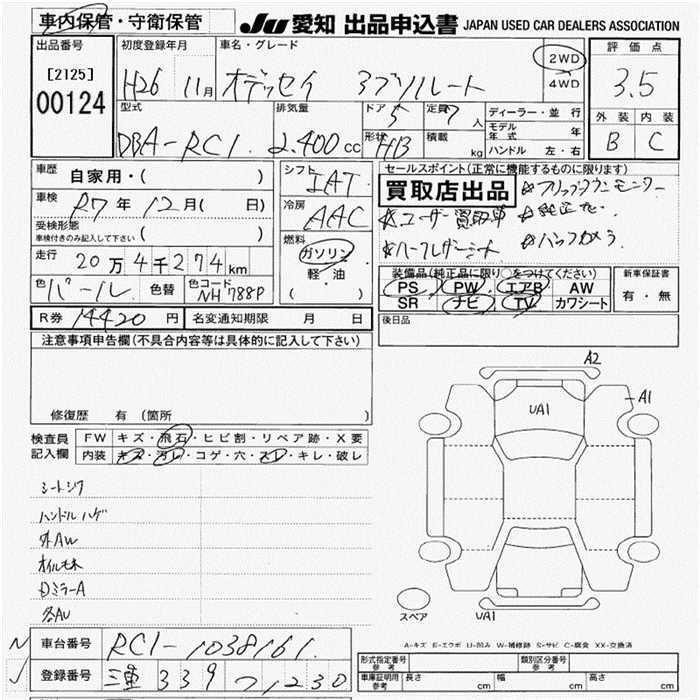 車内保管・守衛保管
JU 愛知 出品申込書 JAPAN USED CAR DEALERS ASSOCIATION
出品番号
[2125]
00124
初度登録年月
H26 11月
車名・グレード
オデッセイ アブソルート
2WD
4WD
評価点
3.5
外装 内装
B C
型式
DBA-RC1
排気量
2.400cc
ドア 5
形状 HB
定員 7人
積載 kg
ディーラー・並行
モデル年式 年
ハンドル 左・右
車歴 自家用・( )
車検 R7年 12月( 日)
受検形態
車検付きのみ記入して下さい ( )
走行 20万4千274km
色 パール 色替 色コード NH788P
シフト
IAT
冷房
AAC
燃料
ガソリン
軽・油
( )
セールスポイント(正常に機能するものに限ります)
買取店出品
☆フリップダウンモニター
☆ユーザー買取車
☆純正ナビ
☆ハーフレザーシート
☆バックカメラ
装備品(純正品に限り○をつけてください)
PS PW エアB AW
SR ナビ TV カワシート
新車保証書
有・無
R券 14420円 名変通知期限 月 日
後日品
注意事項申告欄(不具合内容等は具体的に記入して下さい)
修復歴 有(箇所 )
検査員記入欄
FW キズ・飛石・ヒビ割・リペア跡・X要
内装 キズ・汚レ・コゲ・穴・スレ・キレ・破レ
シートシワ
ハンドルハゲ
外AW
オイルモレ
DミラーA
各AU
A2
A1
UA1
スペア
UA1
A-キズ E-エクボ U-凹み W-補修跡 S-サビ C-腐食 XX-交換済
車台番号 RC1-1038161
登録番号 三重 339 フ 1230
形式指定番号 参考
類別区分番号 参考
車庫証明用 参考 長さ cm 幅 cm 高さ cm